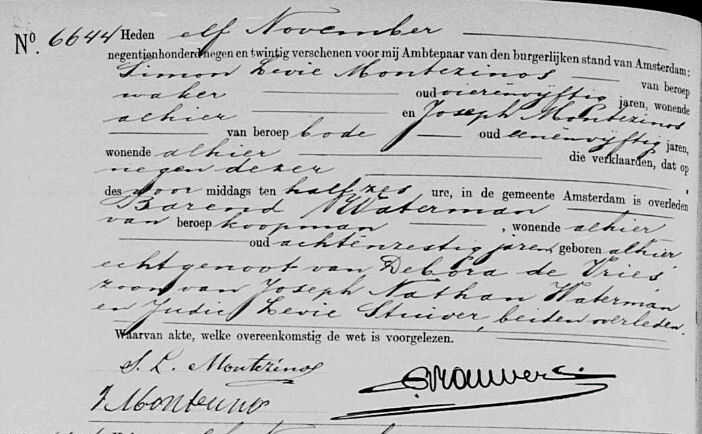 No. 6644 Heden elf November
negentienhonderd negen en twintig verschenen voor mij Ambtenaar van den burgerlijken stand van Amsterdam:
Simon Levie Montezinos van beroep
waker oud vierenvijftig jaren, wonende
alhier en Joseph Montezinos
van beroep bode oud eenenvijftig jaren,
wonende alhier die verklaarden, dat op
negen dezer,
des voor middags ten half zes ure, in de gemeente Amsterdam is overleden
Barend Waterman
van beroep koopman, wonende alhier
oud achtenzestig jaren, geboren alhier
echtgenoot van Debora de Vries
zoon van Joseph Nathan Waterman
en Judic Levie Stuiver, beiden overleden.
Waarvan akte, welke overeenkomstig de wet is voorgelezen.
S. L. Montezinos
J Montezinos